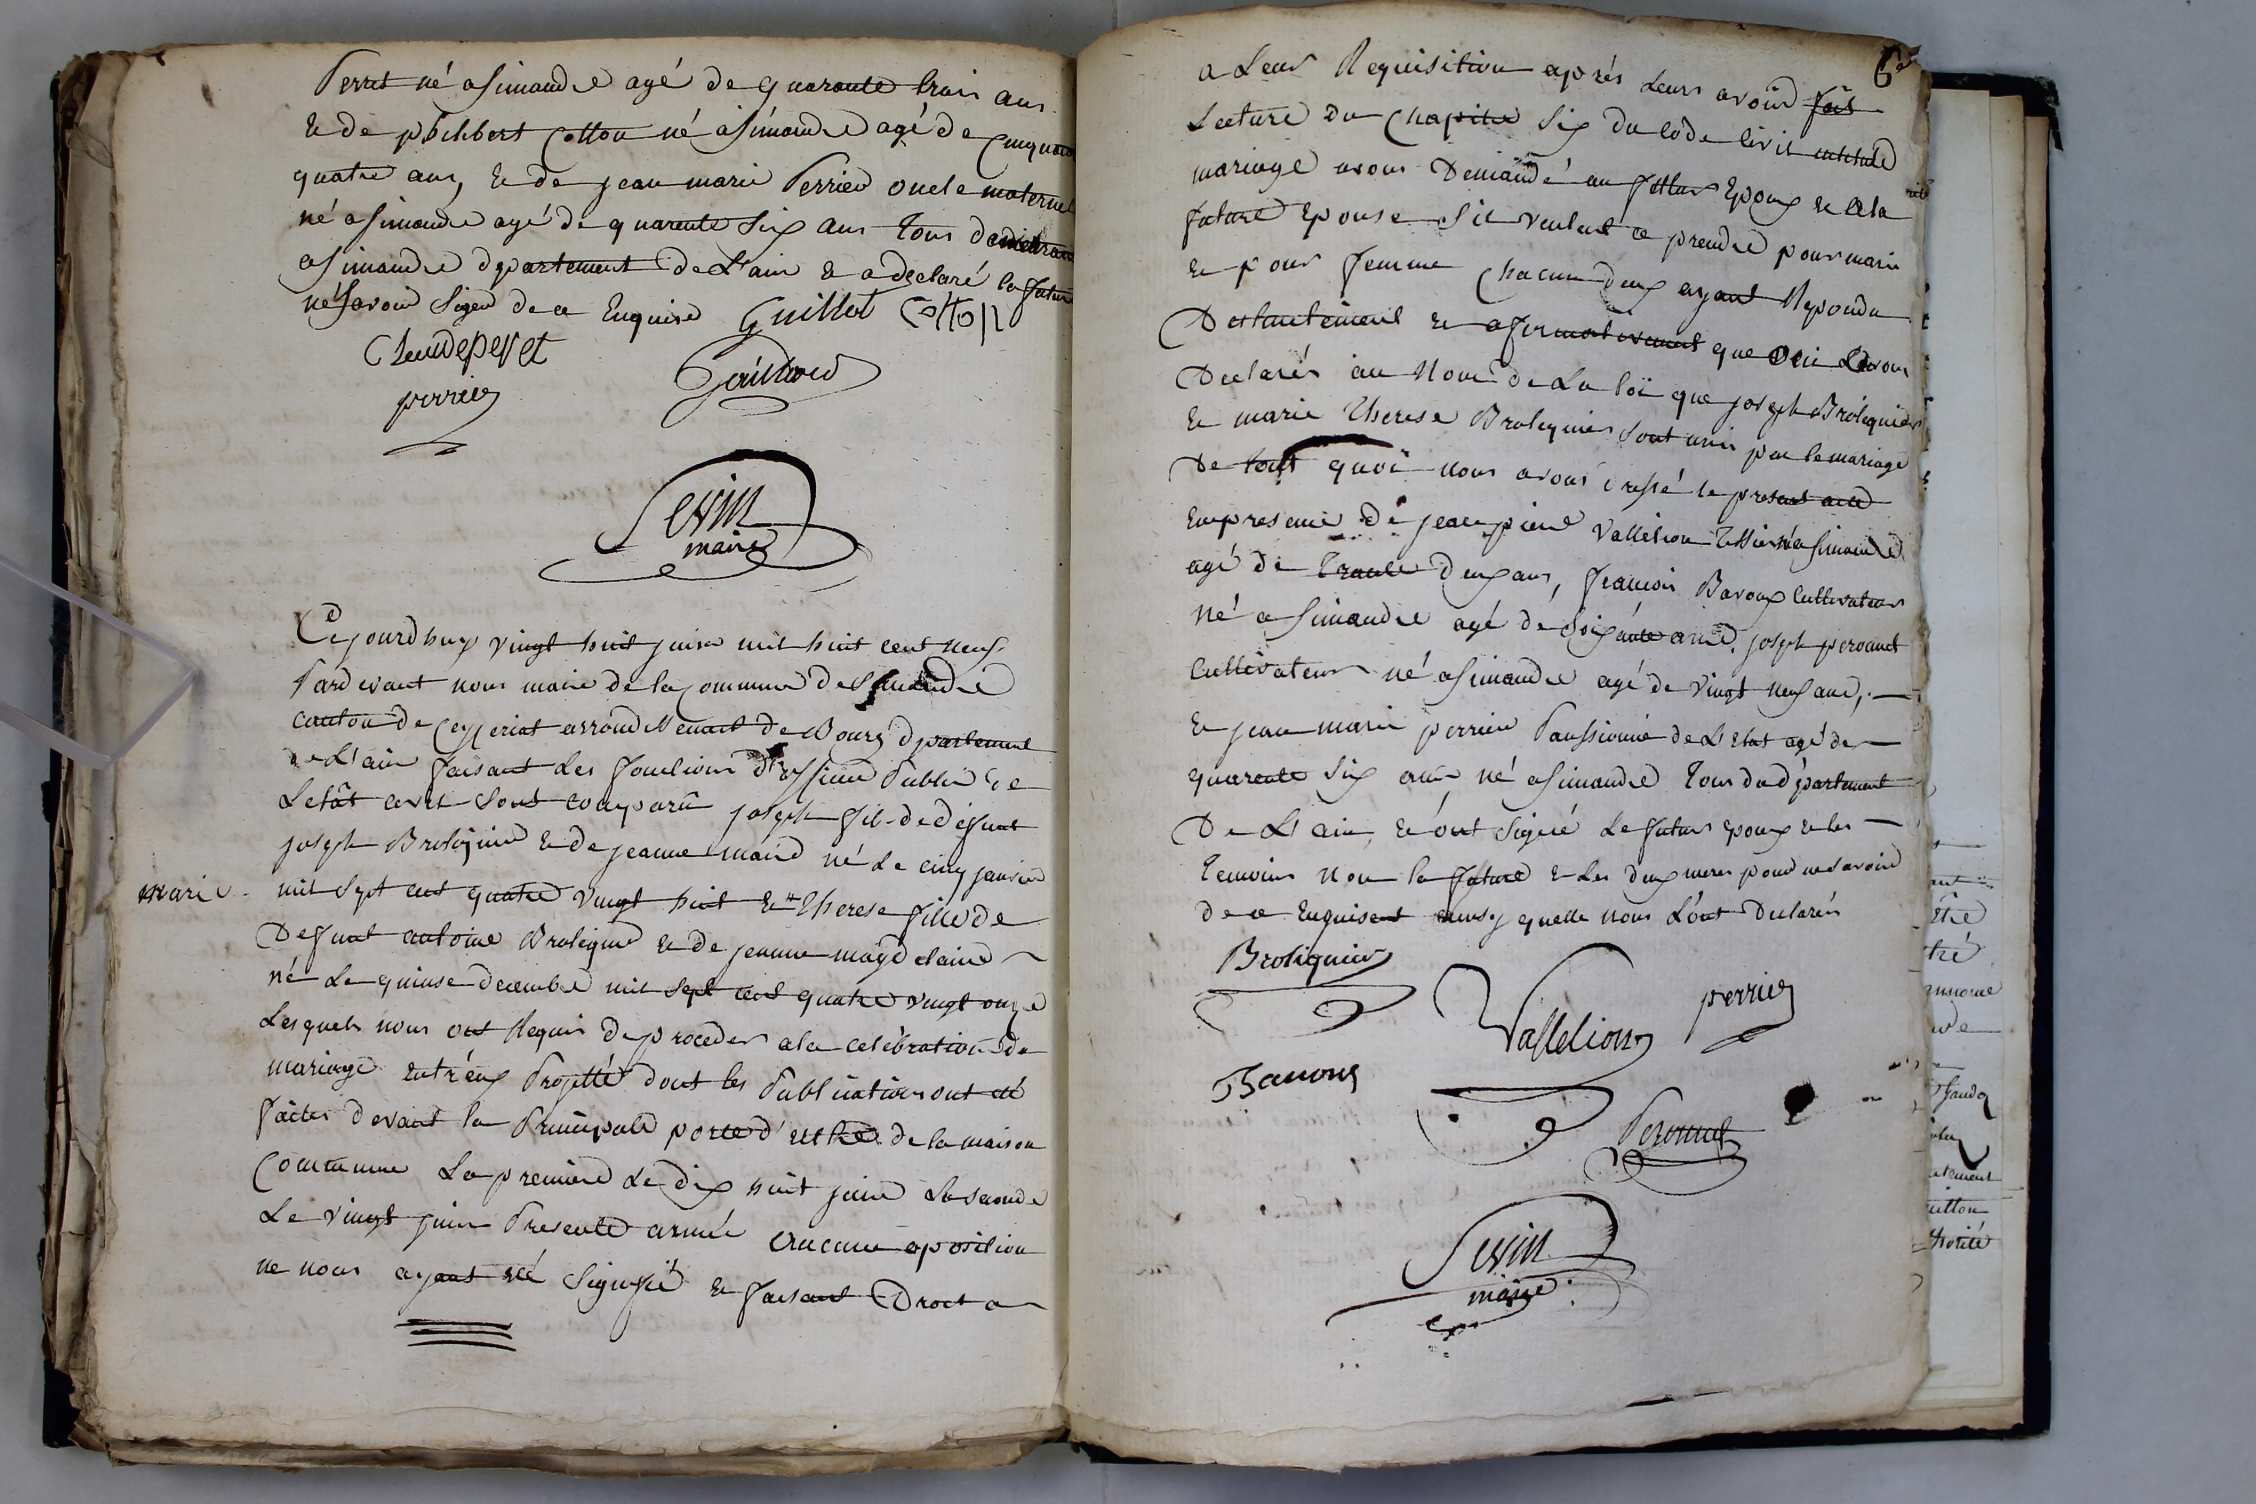 Perret né a Simandre agé de quarante trois ans
& de philibert Cotton né a Simandre agé de Cinquante
quatre ans, & de jean marie Perrier oncle maternel
né a Simandre agé de quarante Six ans tous demeurant
a Simandre departement de L'ain & a declaré la future
ne Savoir Signer de ce Enquise Guillot Cotton
Claude peret
perrier
Guillod
Sevin
maire
Cejourdhuy vingt huit juin mil huit cent neuf
Pardevant nous maire de la Commune de Simandre
canton de Ceyzeriat arrondissement de Bourg departement
de L'ain faisant les fonctions d'officier Public de
Letât civil Sont comparû joseph fils de défunt
joseph Broliquier & de jeanne maire né Le cinq janvier
marie
mil sept cent quatre vingt huit & Therese fille de
Defunt antoine Broliquier & de jeanne magdelaine
né Le quinse decembre mil sept cent quatre vingt onze
Lesquels nous ont Requis de proceder a la celebration du
mariage entr'eux Projetté dont les Publications ont été
faites devant la Principale porte d'entrée de la maison
Commune La premiere Le dix huit juin La seconde
Le vingt juin Presente année Aucune oposition
ne nous ayant été Signifié & faisant Droit a
6
a Leur Requisition aprés Leurs avoir fait
Lecture du Chapitre Six du Code Civil intitulé
mariage avons Demandé au futur Epoux & a la
future Epouse S'il veulent ce prendre pour mari
& pour femme Chacun deux ayant Repondu
Distinctement & afirmativement que Oui avons
Declarés au Nom de La loi que joseph Broliquier
& marie Therese Broliquier sont unis par le mariage
De tout quoi nous avons dressé le present acte
En presence de jean pierre Vallelion Tissier né a Simandre
agé de Trente deux ans, francois Baroux Cultivateur
Né a Simandre agé de Soixante ans. joseph peronnet
Cultivateur né a Simandre agé de vingt neuf ans,
& jean marie perrier Panssionné de L'Etat agé de
quarente Six ans né a Simandre Tous du département
De L'ain, & ont Signé Le futur epoux & les
Temoins Non la future & Les deux meres pour ne savoir
de ce Enquisent ainsy quelle nous L'ont Declarés
Broliquier
Vallelion
perrier
Barroux
Peronnet
Sevin
maire